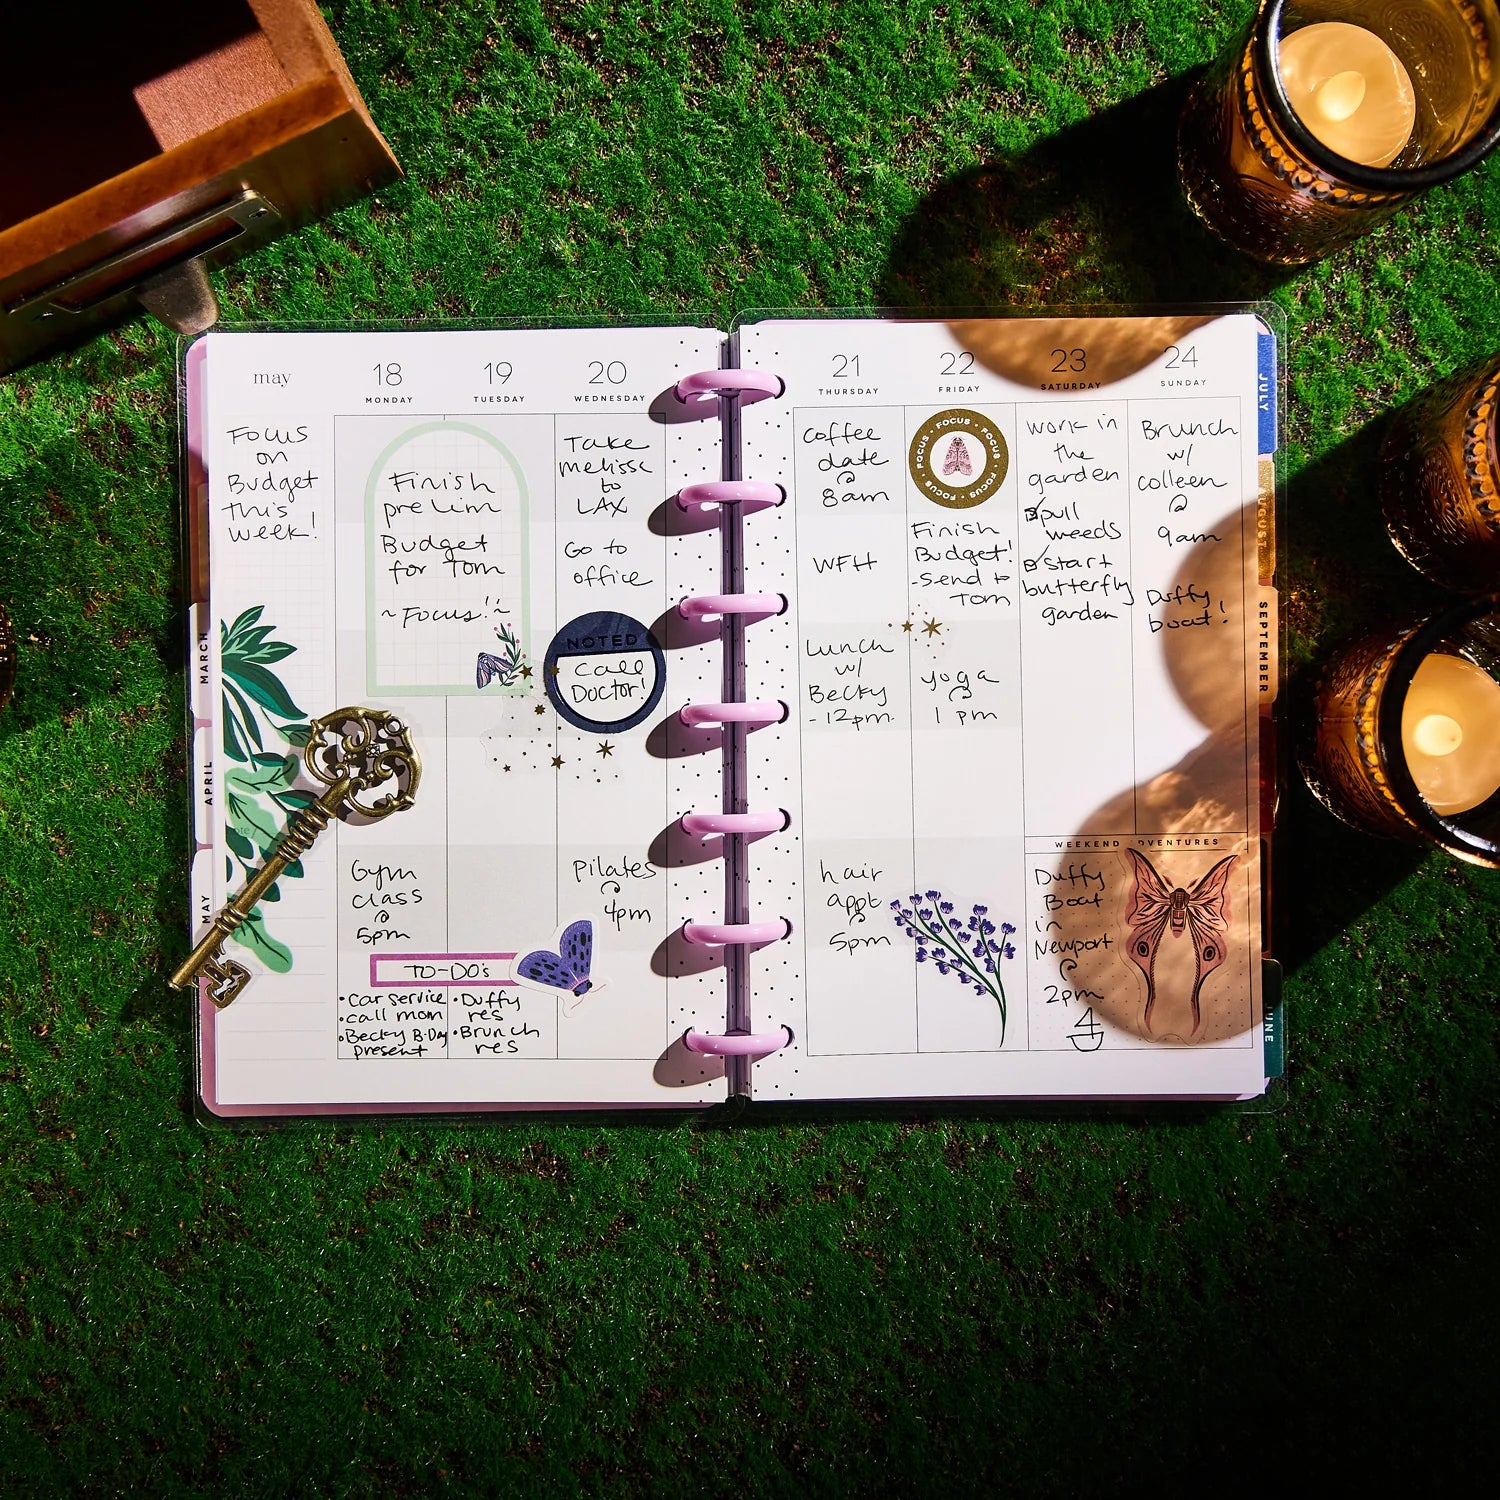 may
Focus
on
Budget
this
week!
18
MONDAY
19
TUESDAY
20
WEDNESDAY
Finish
prelim
Budget
for Tom
~Focus!~
Take
melissa
to
LAX
Go to
office
NOTED
Call
Doctor!
Gym
class
@
5pm
Pilates
@
4pm
TO-DO's
• Car service
• call mom
• Becky B-Day
present
• Duffy
res
• Brunch
res
21
THURSDAY
Coffee
date
@
8am
WFH
Lunch
w/
Becky
- 12pm.
hair
appt
@
5pm
22
FRIDAY
FOCUS • FOCUS • FOCUS • FOCUS • FOCUS
Finish
Budget!
- send to
Tom
yoga
@
1 pm
23
SATURDAY
work in
the
garden
pull
weeds
start
butterfly
garden
24
SUNDAY
Brunch
w/
colleen
@
9am
Duffy
boat!
WEEKEND ADVENTURES
Duffy
Boat
in
Newport
@
2pm
MARCH
APRIL
MAY
JULY
AUGUST
SEPTEMBER
JUNE